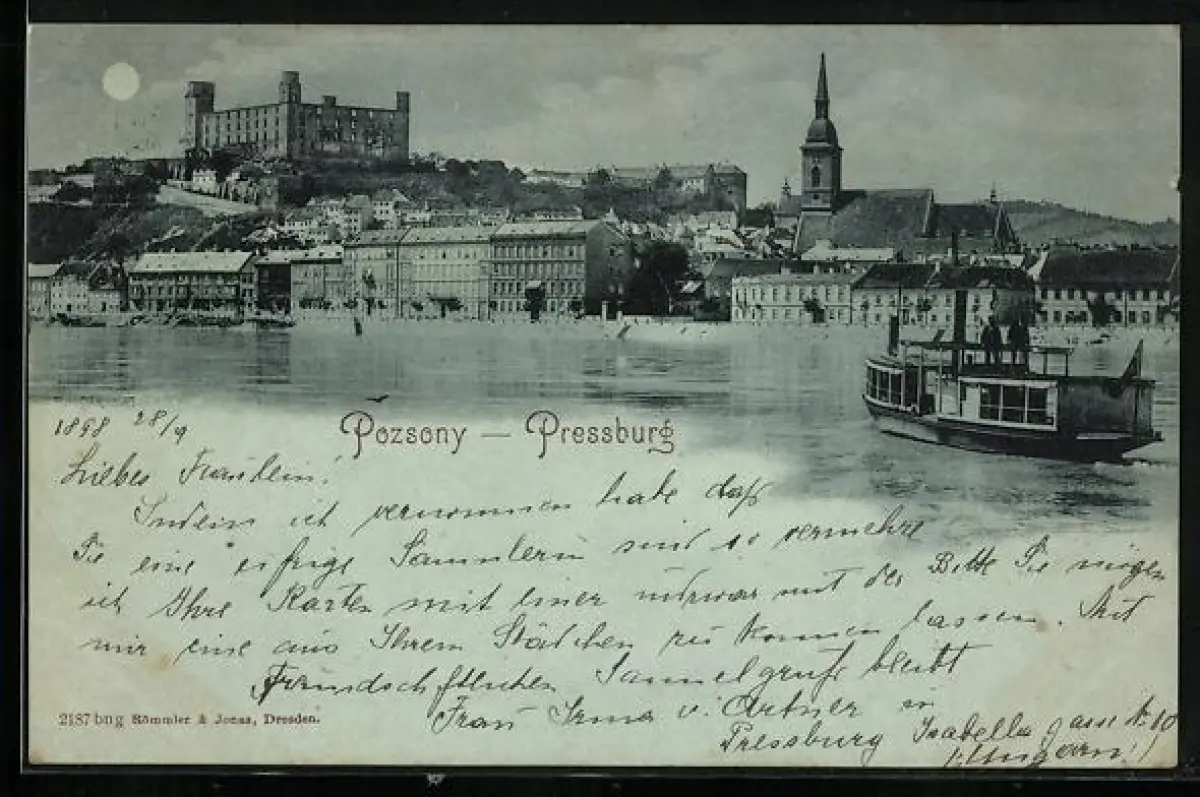 Pozsony — Pressburg
1898 28/9
Liebes Fräulein!
Indem ich vernommen habe daß
Sie eine eifrige Sammlerin sind so vermehre
ich Ihre Karten mit einer mit der Bitte Sie mögen
mir eine aus Ihrem Städchen zu kommen lassen. Mit
Freundschftlichen Sammelgruß bleibt
Frau Irma v. Ortner in
Pressburg Isabella gasse N. 10
(Ungarn)
2187 bng Römmler & Jonas, Dresden.